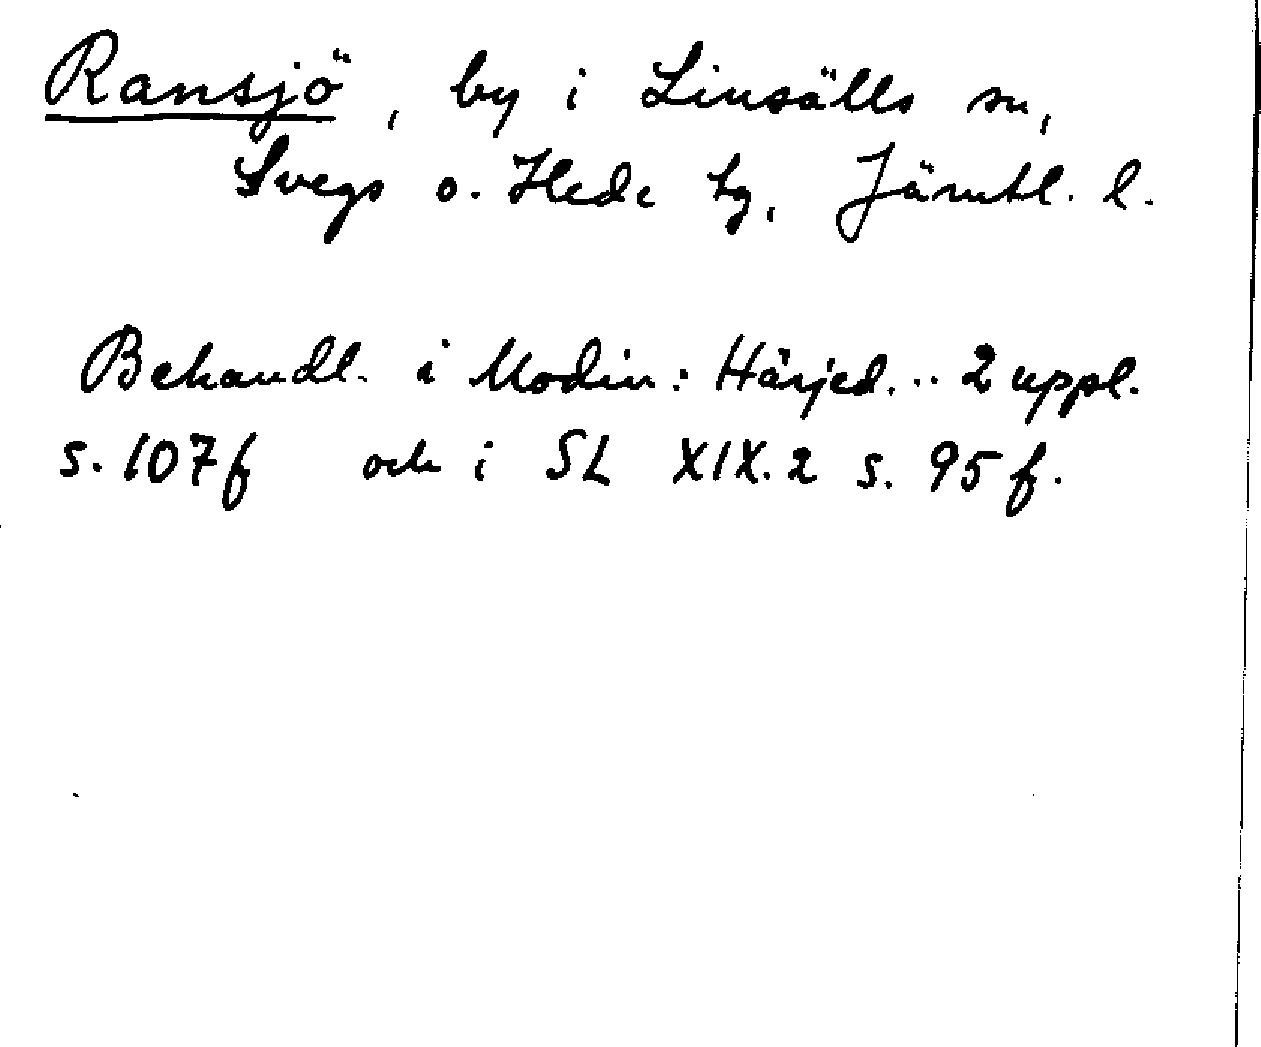 Ransjö, by i Linsälls sn,
Svegs o. Hede tg, Jämtl. l.
Behandl. i Modin: Härjed... 2 uppl.
s. 107f och i SL XIX.2 s. 95 f.